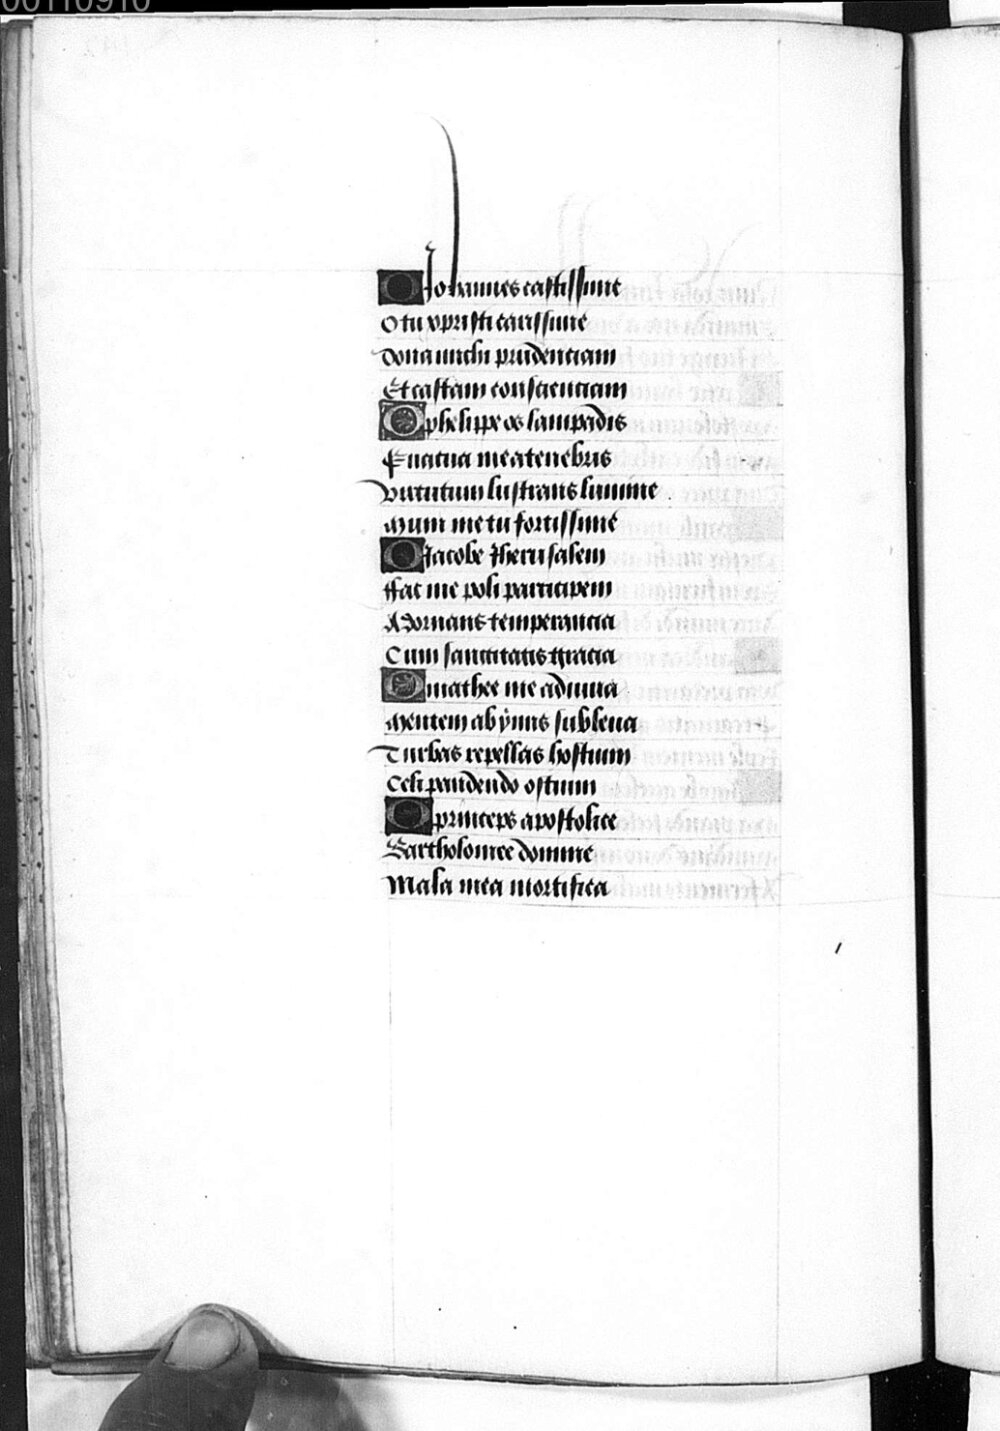 00110910
O Johannes castissime
O tu xpristi carissime
Dona michi prudenciam
Et castam conscienciam
O phelippe os lampadis
Enacua mea tenebris
Virtutum lustrans lumine
Mum me tu fortissime
O Jacobe Jherusalem
ffac me poli participem
Adornans temperancia
Cum sanctitatis gracia
O mathee me adiuua
Mentem ab ymis subleua
Turbas repellas hostium
Celi pandendo ostium
O princeps apostolice
Bartholomee domine
Mala mea mortifica